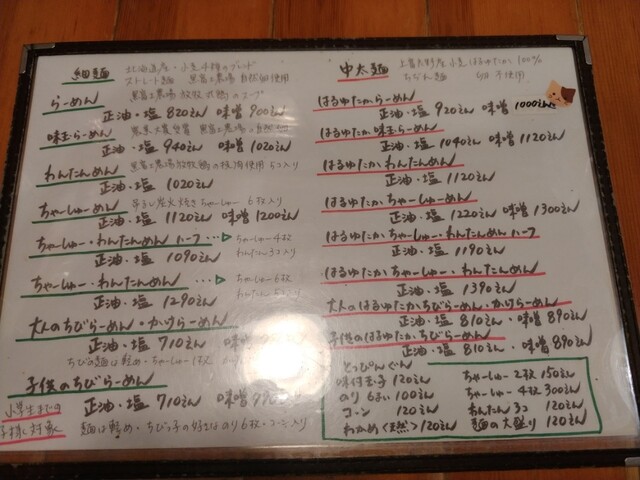 細麺
北海道産・小麦 小種のブレンド
ストレート麺 黒富士農場 自然卵使用
らーめん
黒富士農場 放牧 のスープ
正油・塩 820えん 味噌 900えん
味玉らーめん
黒富士農場
正油・塩 940えん 味噌 1020えん
わんたんめん
黒富士農場放牧鶏の 使用 5コ入り
正油・塩 1020えん
ちゃーしゅーめん
吊るし炭火焼きちゃーしゅー 6枚入り
正油・塩 1120えん 味噌 1200えん
ちゃーしゅー・わんたんめん ハーフ …▷ ちゃーしゅー4枚
わんたん3コ入り
正油・塩 1090えん
ちゃーしゅー・わんたんめん …▷ ちゃーしゅー6枚
わんたん5コ入り
正油・塩 1290えん
大人のちびらーめん・かけらーめん
正油・塩 710えん 味
ちびの麺は軽め・ちゃーしゅー1枚
子供のちびらーめん
小学生までの
お子様 対象
正油・塩 710えん 味噌 790えん
麺は軽め・ちびっ子の好きな のり6枚・コーン入り
中太麺
上富良野産小麦 はるゆたか 100%
ちぢれ麺 卵不使用
はるゆたからーめん
正油・塩 920えん 味噌 1000えん
はるゆたか 味玉らーめん
正油・塩 1040えん 味噌 1120えん
はるゆたか わんたんめん
正油・塩 1120えん
はるゆたか ちゃーしゅーめん
正油・塩 1220えん 味噌 1300えん
はるゆたか ちゃーしゅー・わんたんめん ハーフ
正油・塩 1190えん
はるゆたか ちゃーしゅー・わんたんめん
正油・塩 1390えん
大人のはるゆたかちびらーめん・かけらーめん
正油・塩 810えん・味噌 890えん
子供のはるゆたか ちびらーめん
正油・塩 810えん・味噌 890えん
とっぴんぐん
味付玉子 120えん
のり 6まい 100えん
コーン 120えん
わかめ<天然> 120えん
ちゃーしゅー 2枚 150えん
ちゃーしゅー 4枚 300えん
わんたん 3コ 120えん
麺の大盛り 120えん